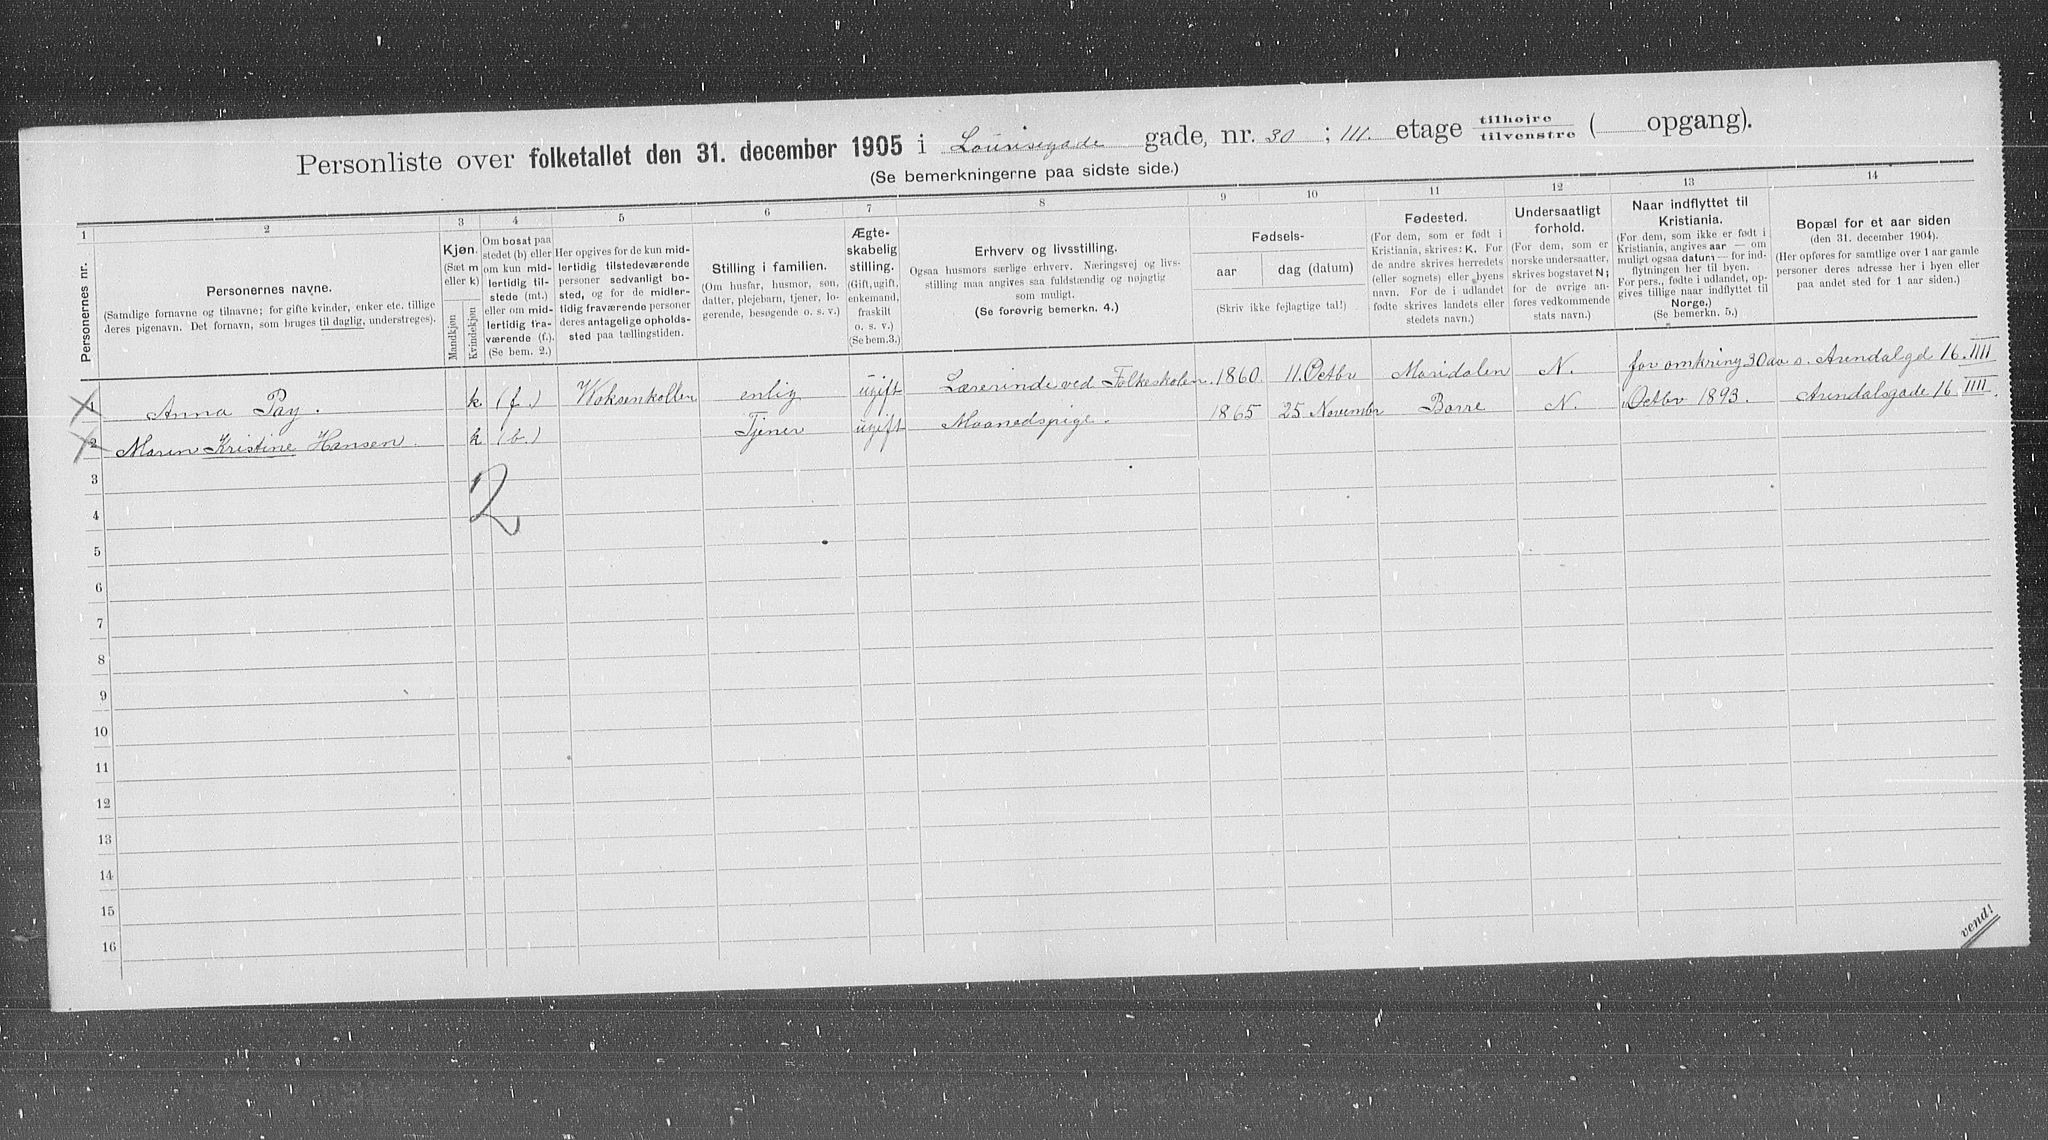 Personliste over folketallet den 31. december 1905 i Louisegade gade, nr. 30 ; III. etage tilhøjre tilvenstre ( opgang).
(Se bemerkningerne paa sidste side.)
1 2 3 4 5 6 7 8 9 10 11 12 13 14
Personernes nr.
Personernes navne.
(Samtlige fornavne og tilnavne; for gifte kvinder, enker etc. tillige
deres pigenavn. Det fornavn, som bruges til daglig, understreges).
Kjøn.
(Sæt m
eller k)
Mandkjøn
Kvindekjøn
Om bosat paa
stedet (b) eller
om kun mid-
lertidig til-
stede (mt.)
eller om mid-
lertidig fra-
værende (f.)
(Se bem. 2.)
Her opgives for de kun mid-
lertidig tilstedeværende
personer sedvanligt bo-
sted, og for de midler-
tidig fraværende personer
deres antagelige opholds-
sted paa tællingstiden.
Stilling i familien.
(Om husfar, husmor, søn,
datter, plejebarn, tjener, lo-
gerende, besøgende o. s. v.)
Ægte-
skabelig
stilling.
(Gift, ugift,
enkemand,
fraskilt
o. s. v.)
(Se bem.3.)
Erhverv og livsstilling.
Ogsaa husmors særlige erhverv. Næringsvej og livs-
stilling maa angives saa fuldstændig og nøjagtig
som muligt.
(Se forøvrig bemerkn. 4.)
Fødsels-
aar dag (datum)
(Skriv ikke fejlagtige tal!)
Fødested.
(For dem, som er født i
Kristiania, skrives: K. For
de andre skrives herredets
(eller sognets) eller byens
navn. For de i udlandet
fødte skrives landets eller
stedets navn.)
Undersaatligt
forhold.
(For dem, som er
norske undersaatter,
skrives bogstavet N;
for de øvrige an-
føres vedkommende
stats navn.)
Naar indflyttet til
Kristiania.
(For dem, som ikke er født i
Kristiania, angives aar — om
muligt ogsaa datum — for ind-
flytningen her til byen.
For pers., fødte i udlandet, op-
gives tillige naar indflyttet til
Norge.)
(Se bemerkn. 5.)
Bopæl for et aar siden
(den 31. december 1904).
(Her opføres for samtlige over 1 aar gamle
personer deres adresse her i byen eller
paa andet sted for 1 aar siden.)
1 Anna Pay. k (f.) Woksenkollen enlig ugift Lærerinde ved Folkeskolen. 1860. 11. Octbr Maridalen N. for omkring 30 aa s. Arendalgd 16. IIII
2 Maren Kristine Hansen. k (b.) Tjener ugift Maanedspige. 1865 25 Novembr Borre N. Octbr 1893. Arendalsgade 16 IIII.
3
2
4
5
6
7
8
9
10
11
12
13
14
15
16
vend!